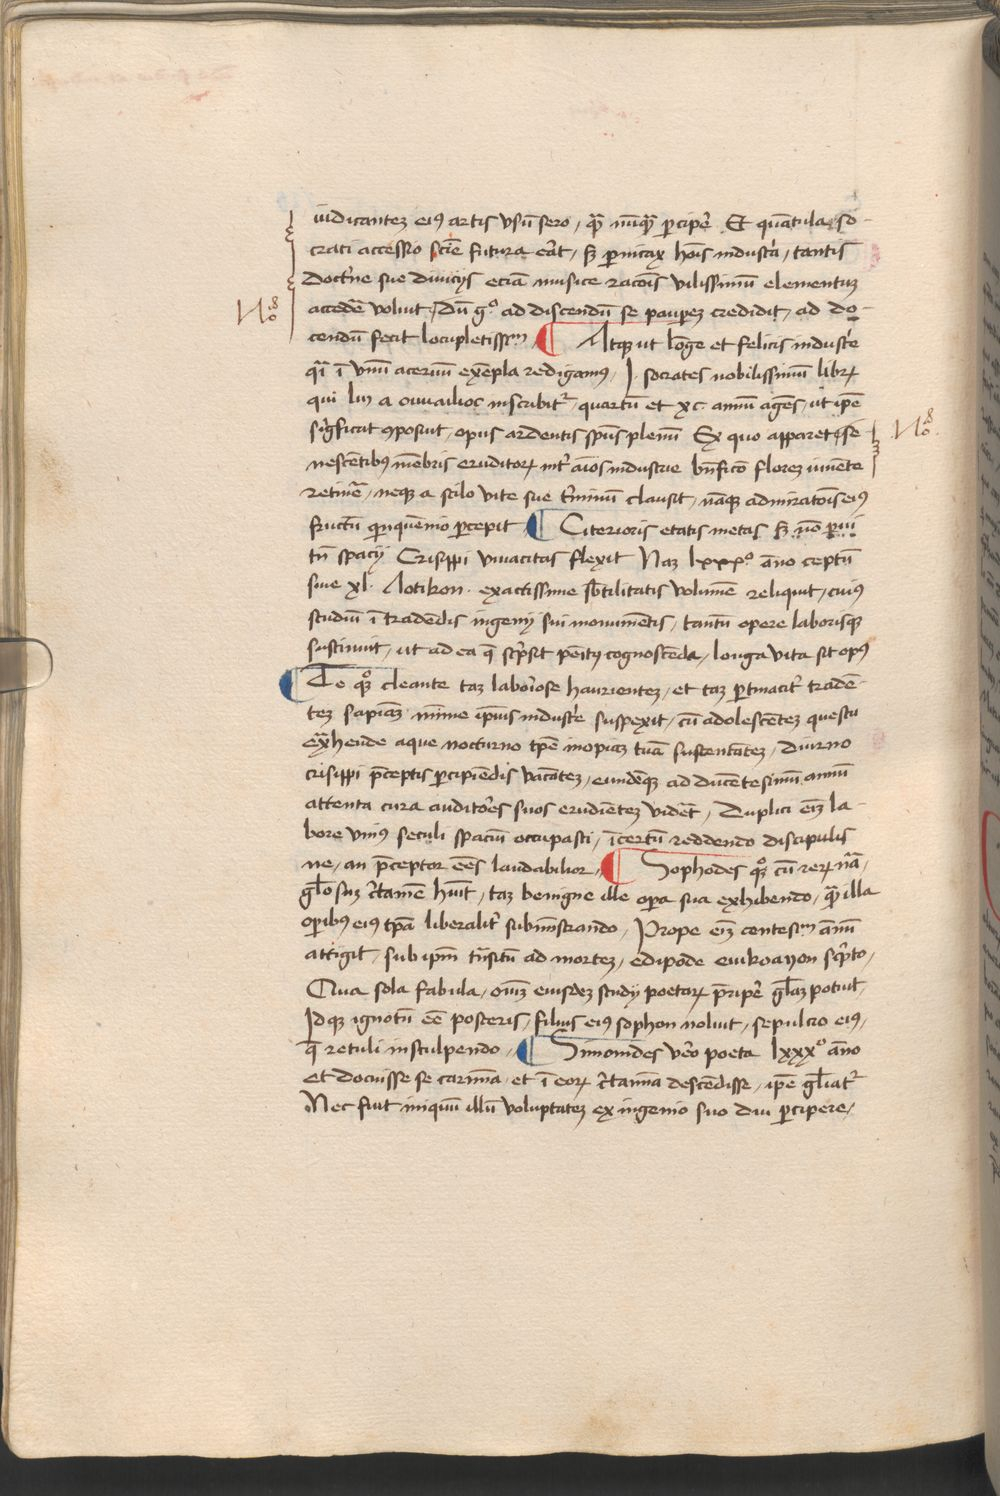 iudicantez eiꝰ artis vsū sero / qͣ̄ nūqͣ̄ ꝑcipē Et quātula so
crati accessio scīe futura eāt / sꝫ ꝑuicax hoīs industͥa / tantis
doctͥne sue diuicijs eciā musice racōis vilissimū elementuz
accedē voluit / dū gͦ ad discendū se pauꝑez credidit / ad do
cendū fecit locupletissᵐ / ¶ Atqꝫ ut lōge et felicis industͥe
qͣi ī vnū aceruū exēpla redigamꝰ / I socrates nobilissimū librꝝ
qui
inscribitᷣ / quartū et xc annū agēs / ut ipē
sīgficat ꝯposuit / opus ardentis spūs plenū Ex quo apparet / se
nescētibꝰ mēbris eruditorꝝ intͬ aīos industrie bn̄ficō florez iuuēte
retinēͣ / neqꝫ a stilo vite sue tͬminū clausit / nāqꝫ admiratōis eiꝰ
fructū qͥnquēnio ꝑcepit ¶ Citerioris etatis metas sꝫ nō ꝑui
tn̄ spacij Crisippi viuacitas flexit Naz lxxxº āno ceptū
sue xl. Lotikon. exactissime sb̄tilitatis volumē reliquit / cuiꝰ
studiū ī tradēdis ingenij sui monumētis / tantū opere laborisqꝫ
sustinuit / ut ad ea q̄ scͥpsit pēitꝰ cognoscēda / longa vita sit opꝰ
¶ Te qͦꝫ cleante taz laboͥose haurientez / et taz ꝑtinacitͬ tradē
tez sapīaz nūme ipiꝰ industͥe suspexit / cū adolescētez questu
exͣhende aque nocturno tp̄e inopiaz tuā sustentātez / diurno
crisippi p̄ceptis ꝑcipiēdis vacātez / eundēqꝫ ad ducētesimū annū
attenta cura auditoͬes suos erudiētez vidēt / Duplici eīz la
bore vniꝰ seculi spaciū occupasti / īcertū reddendo discipulis
ne / an p̄ceptor eēs laudabilior / ¶ Sophodes qͦꝫ cū rerꝝ nāͣ /
glōsuz cͬtamē hūit / taz benigne ille oꝑa sua exhibendo / qͣ̄ illa
oꝑibꝰ eiꝰ tp̄a liberalitͬ subminīstrando / Prope eīz centesᵐ annū
attigit / sub ipm̄ tn̄sitū ad mortez / edipode
scͥpto /
Qua sola fabula / oīmz eiusdez studij poetarꝝ p̄ripē gl̄az potuit /
Idqꝫ ignotū eē posteris / filius eiꝰ sophon noluit / sepulcro eiꝰ /
q̄ retuli insculpendo / ¶ Simonides vͦo poeta lxxxº āno
et docuisse se carmīa / et ī eorꝝ cͬtamīa descēdisse / ipē gl̄iatᷣ
Nec fuit iniquū illū voluptatez ex ingenio suo diu ꝑcipere /
Nō
Nō